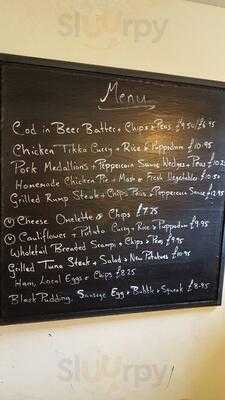 Slurpy
Menu
Cod in Beer Batter + Chips & Peas £9.50/£6.95
Chicken Tikka Curry + Rice & Poppadum £10.95
Pork Medallions + Peppercorn Sauce Wedges + Peas £10.25
Homemade Chicken Pie + Mash & Fresh Vegetables £10.50
Grilled Rump Steak + Chips Peas & Peppercorn Sauce £12.95
(V) Cheese Omelette & Chips £7.25
(V) Cauliflower + Potato Curry + Rice & Puppadum £9.95
Wholetail Breaded Scampi + Chips & Peas £9.95
Grilled Tuna Steak + Salad & New Potatoes £10.95
Ham, Local Eggs & Chips £8.25
Black Pudding, Sausage Egg & Bubble & Squeak £8.95
Slurpy